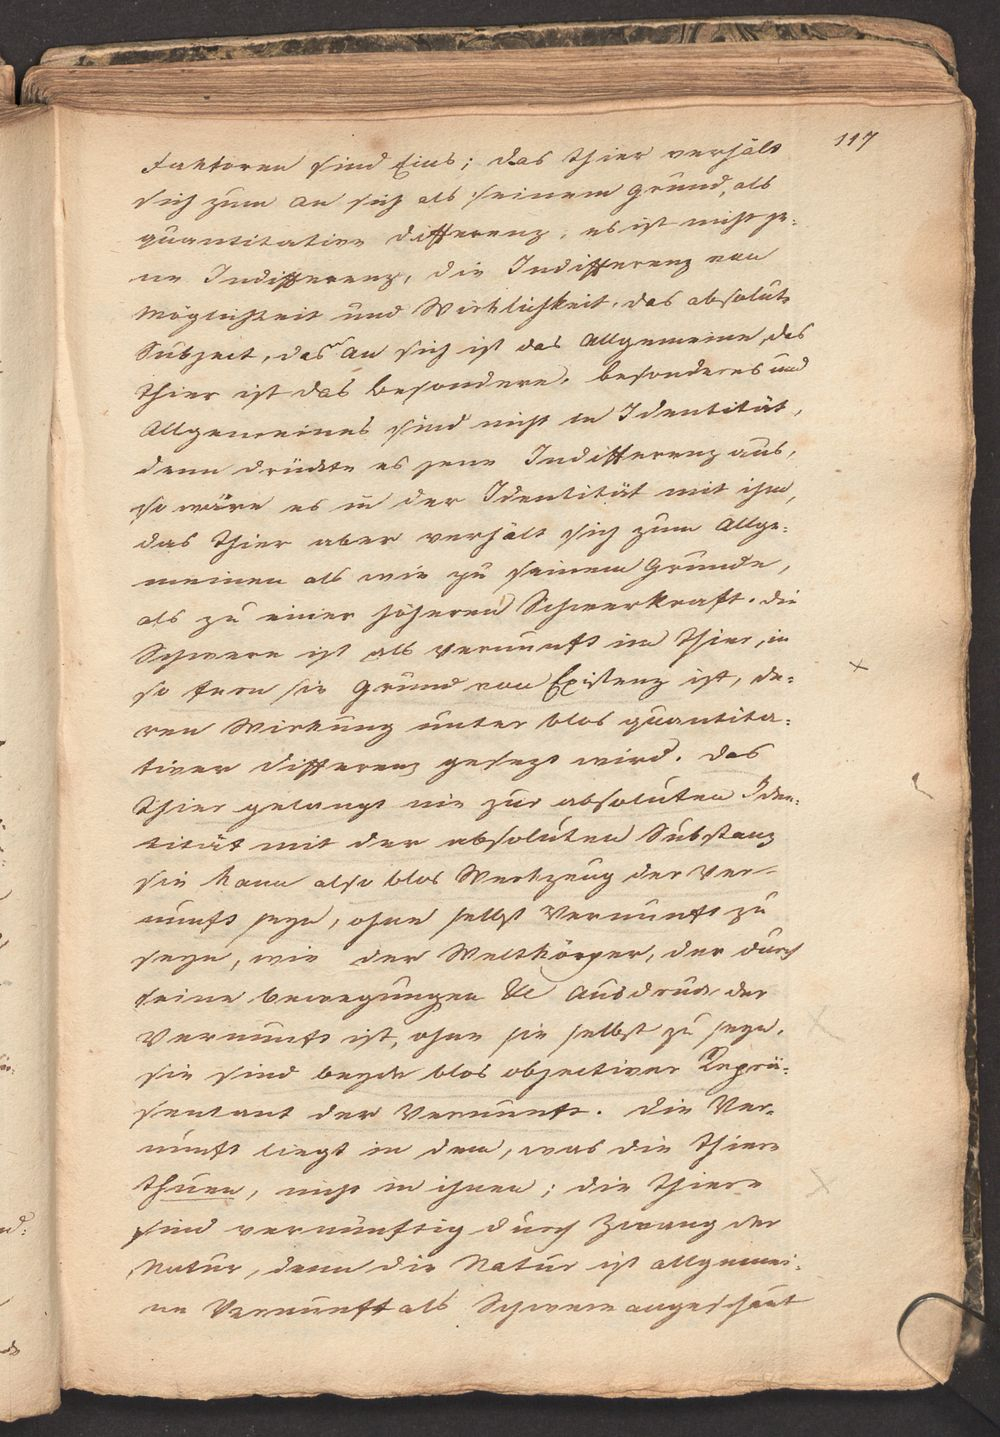 117
Faktoren sind Eins; das Thier verhält
sich zum An sich als seinem Grund, als
quantitative Differenz, es ist nicht je-
ne Indifferenz, die Indifferenz von
Möglichkeit und Wirklichkeit, das absolute
Subject, das An sich ist das Allgemeine, das
Thier ist das Besondere, besonderes und
Allgemeines sind nicht in Identität,
denn drückte es jene Indifferenz aus,
so wäre es in der Identität mit ihm,
das Thier aber verhält sich zum Allge-
meinen als wie zu seinem Grunde,
als zu einer höheren Schwerkraft. Die
Schwere ist als Vernunft im Thier, in
so fern sie Grund von Existenz ist, de-
ren Wirkung unter blos quantita-
tiver Differenz gesezt wird. Das
Thier gelangt nie zur absoluten Iden-
tität mit der absoluten Substanz
sie kann also blos Werkzeug der Ver-
nunft seyn, ohne selbst Vernunft zu
seyn, wie der Weltkörper, der durch
seine Bewegungen &c Ausdruck der
Vernunft ist, ohne sie selbst zu seyn.
sie sind beyde blos objectiver Reprä-
sentant der Vernunft. Die Ver-
nunft liegt in dem, was die Thiere
thuen, nicht in ihnen; die Thiere
sind vernünftig durch Zwang der
Natur, denn die Natur ist allgemei-
ne Vernunft als Schwere angeschaut